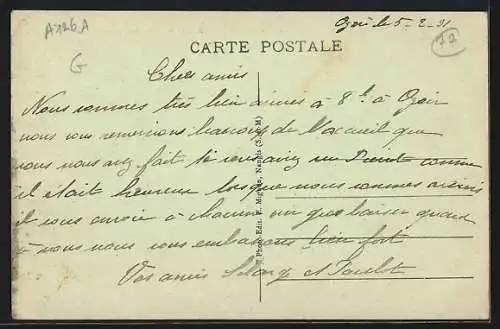 A126A
G
77
Ozoir le 5-2-31
CARTE POSTALE
Chers amis
Nous sommes très bien arrivés à 8h à Ozoir
nous vous remercions beaucoup de l'accueil que
vous nous avez fait si vous aviez vu comme
il était heureux lorsque nous sommes arrivés
il vous envoie à chacun un gros baiser quand
à nous nous vous embrassons bien fort
Vos amis et
Photo-Edit. F. Mignon, Nangis (S.-&-M.)